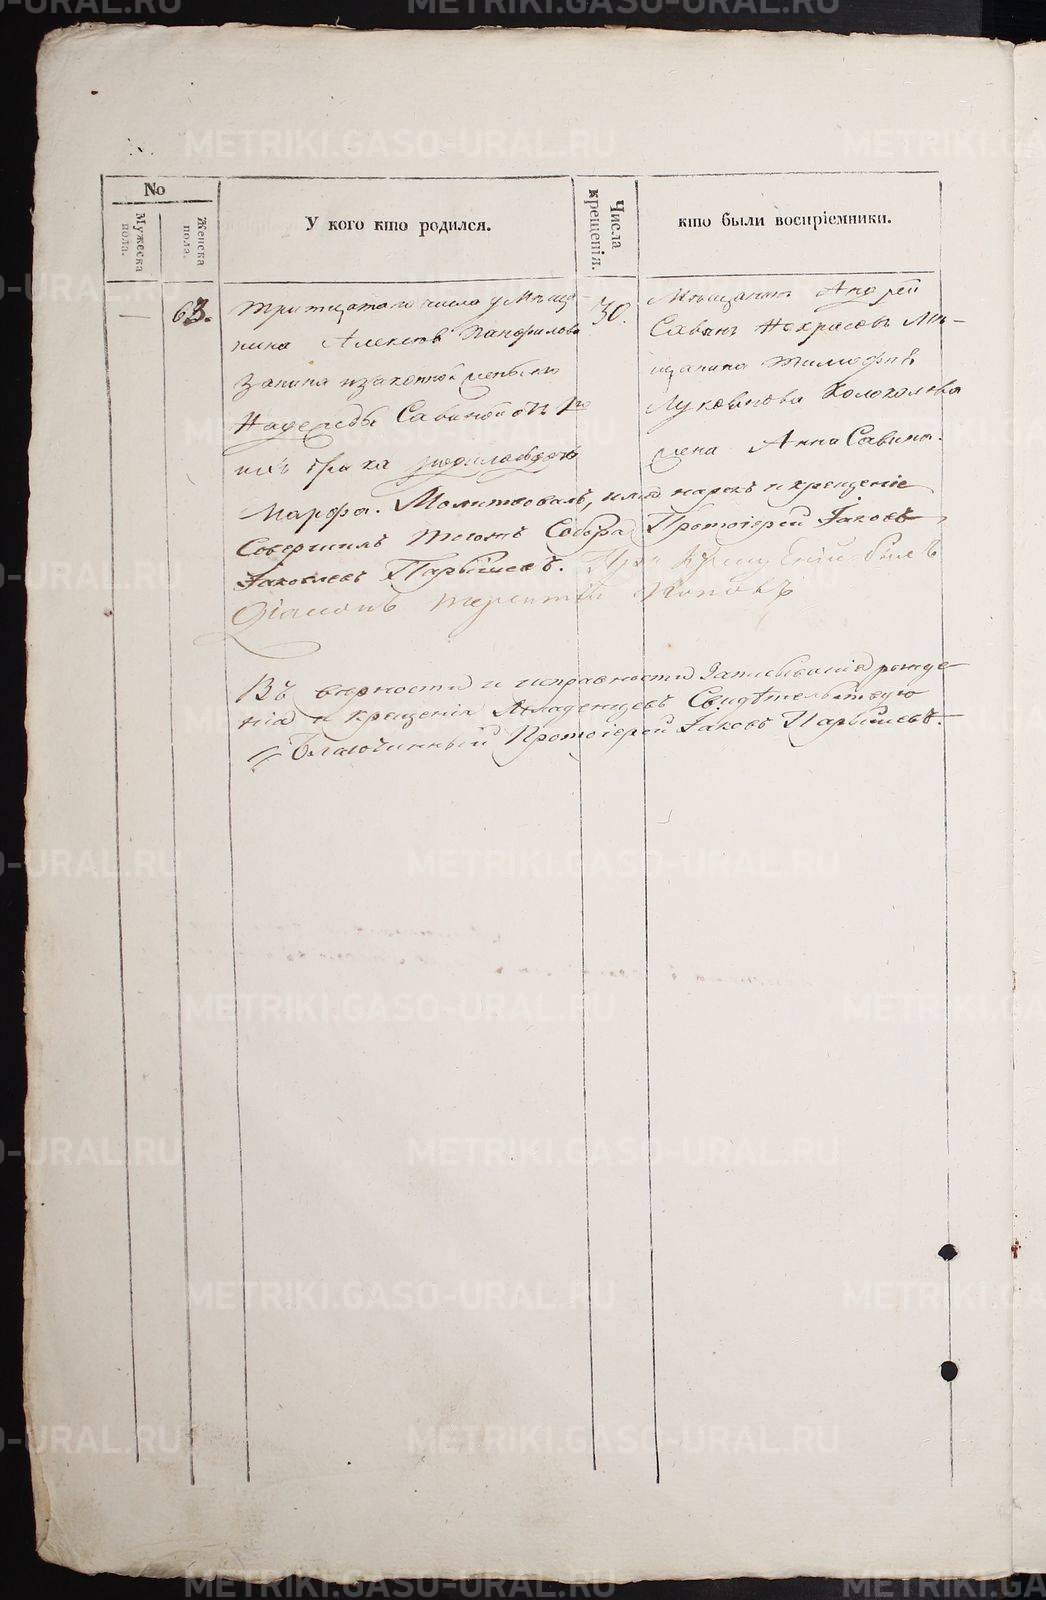 No
Мужеска пола.
Женска пола.
У кого кто родился.
Числа крещенія.
кто были воспріемники.
— 63.
Тритцатаго числа у Мѣща-
нина Алексѣя Панфилова
Занина изаконной жены его
Надежды Савиной
Марфа. Молитвовалъ, имя нарекъ и крещеніе
30.
Мѣщанинъ Андрей
Савинъ Некрасовъ Мѣ-
щанина Тимофея
Луковникова Колоколова
жена Анна Савина.
Совершилъ тогожъ Собора Протоіерей Іаковъ
Іаковлевъ Парышевъ. При крещеніи былъ
Діаконъ Терентій Поповъ
Въ вѣрности и исправности Записыванія рожде-
нія и крещенія Младенцевъ Свидѣтельствую
Благочинный Протоіерей Іаковъ Парышевъ.
METRIKI.GASO-URAL.RU